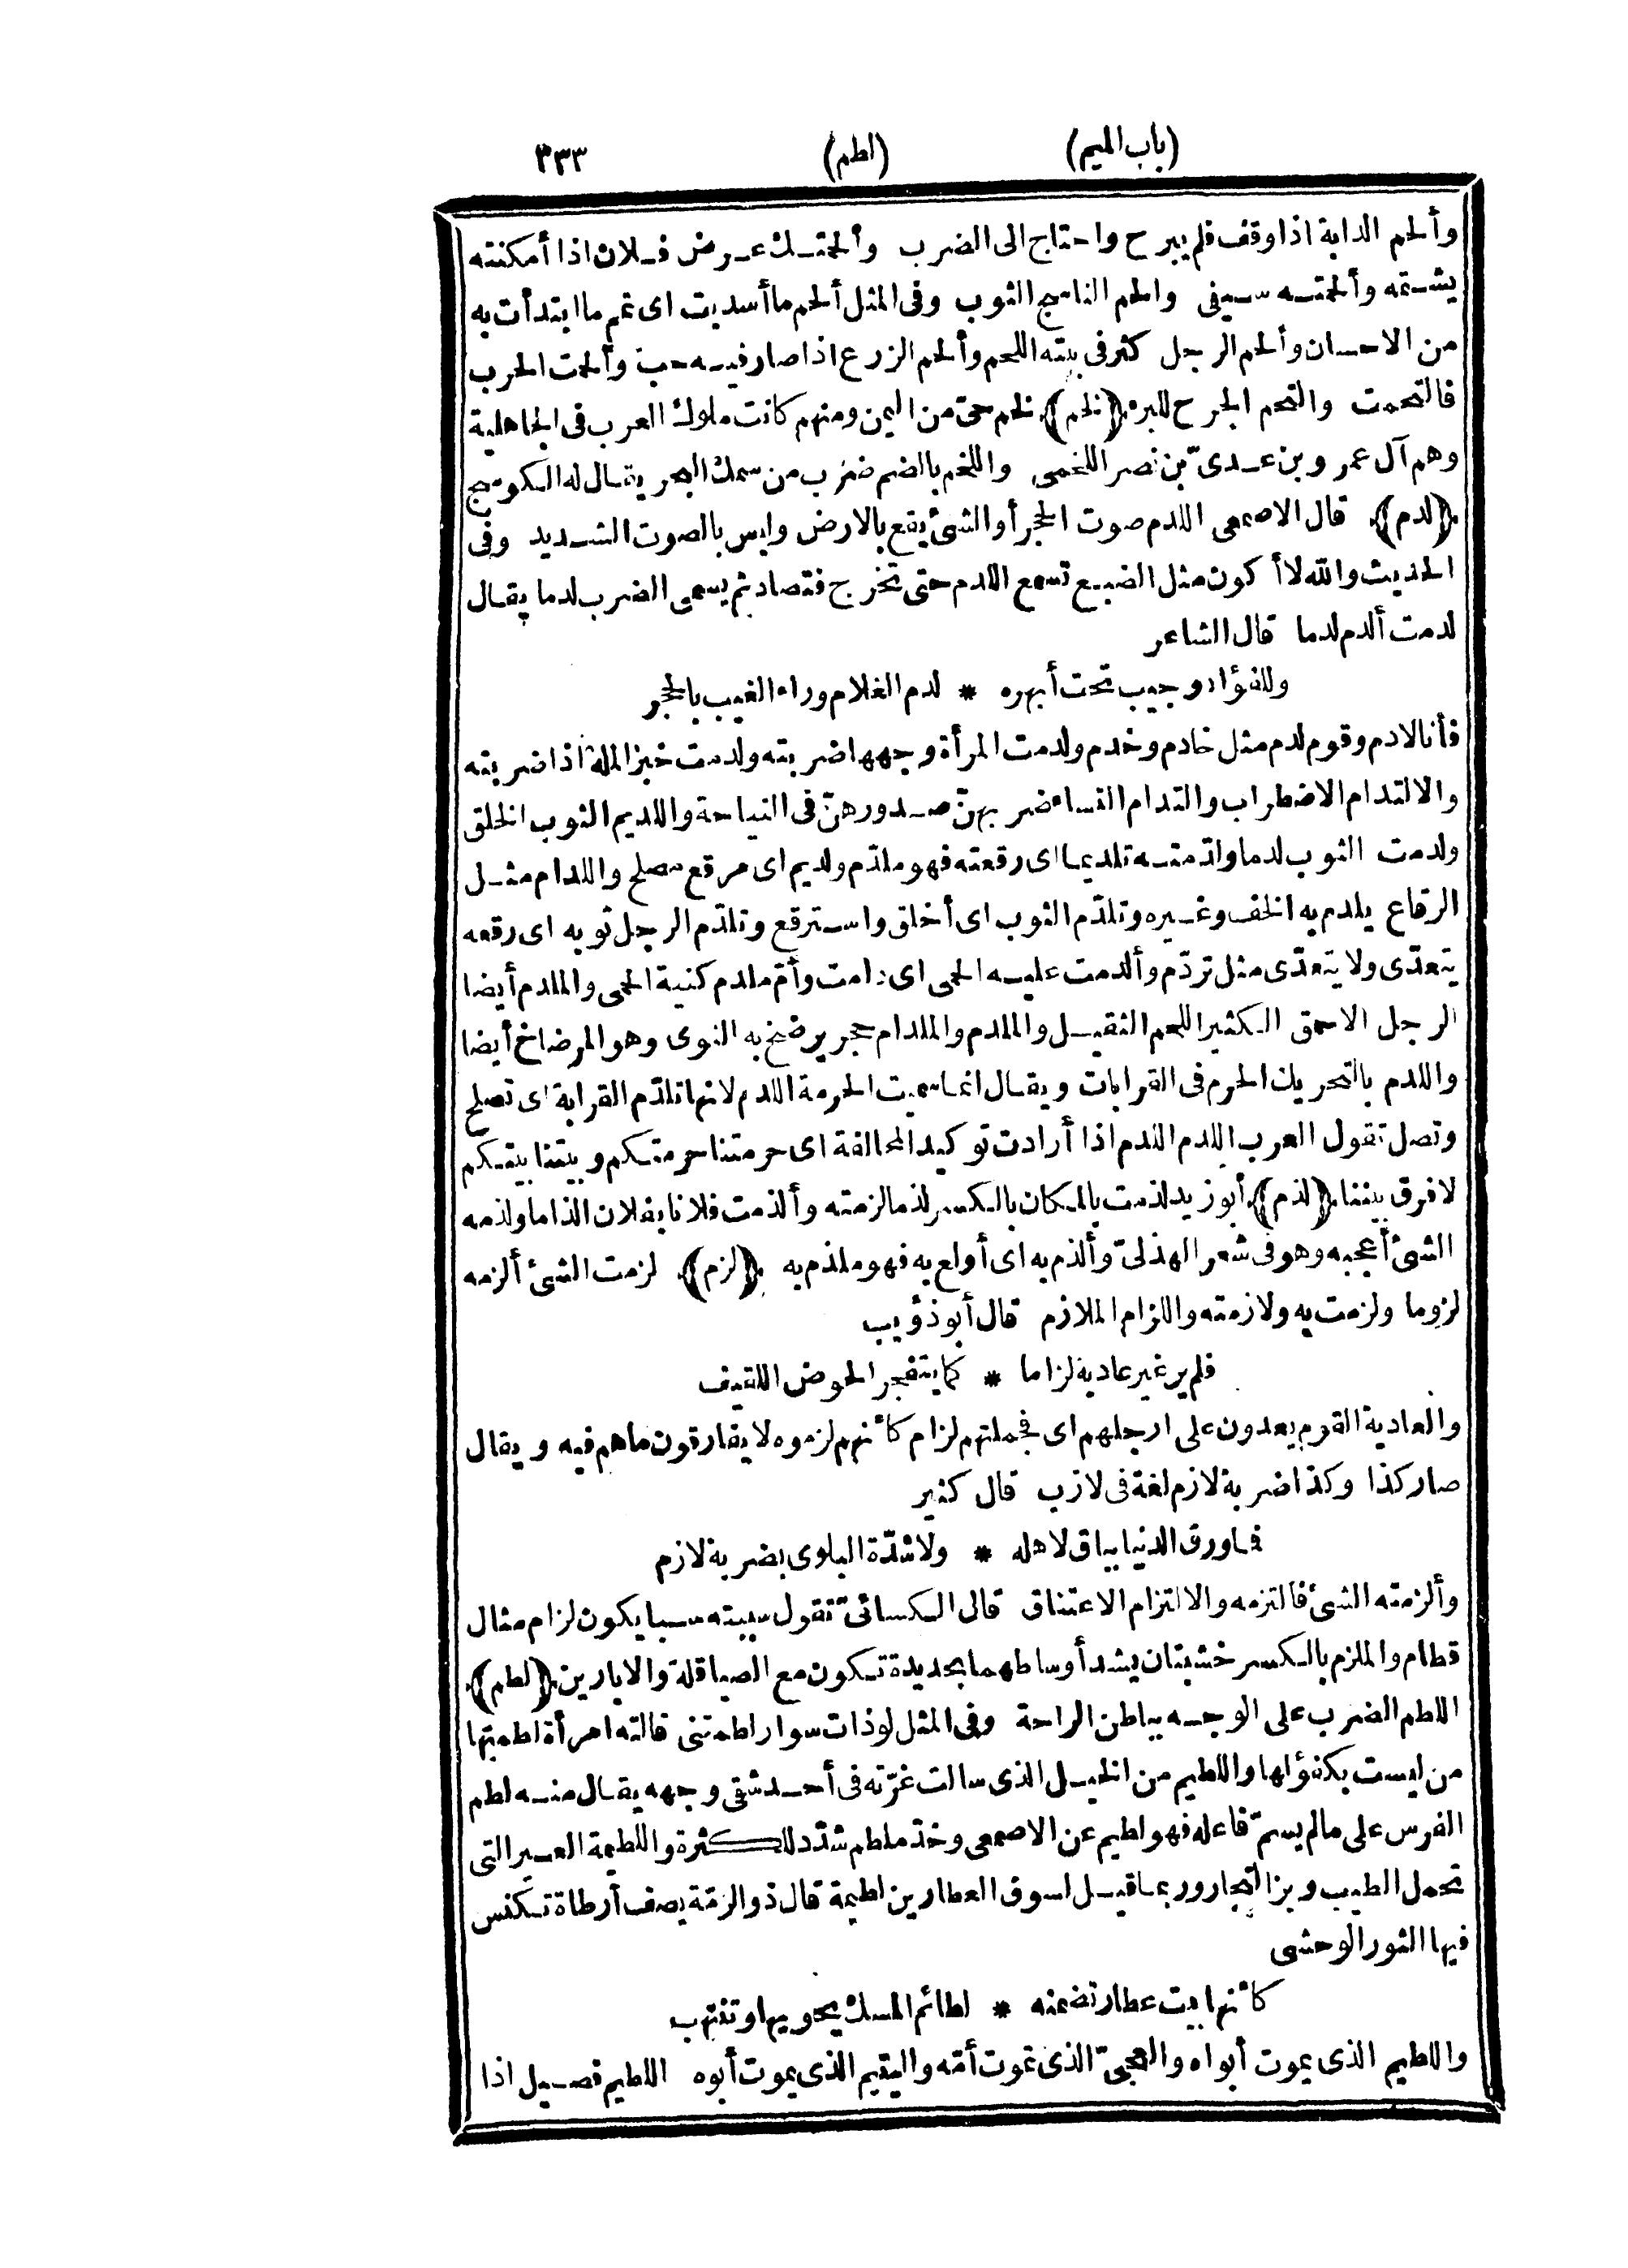 (باب الميم) (لطم) ٣٣٣
وألحم الدابة اذا وقف فلم يبرح واحتاج الى الضرب وألحمتك عرض فلان اذا أمكنته
يشتمه وألحمته سيفى والحم الناسج الثوب وفى المثل ألحم ما أسديت اى تمم ما ابتدأت به
من الاحسان وألحم الرجل كثر فى بيته اللحم وألحم الزرع اذا صار فيه حب وألحمت الحرب
فالتحمت والتحم الجرح للبرء ﴿لخم﴾ لخم حى من اليمن ومنهم كانت ملوك العرب فى الجاهلية
وهم آل عمرو بن عدىّ بن نصر اللخمى واللخم بالضم ضرب من سمك البحر يقال له الكوسج
﴿لدم﴾ قال الاصمعى اللدم صوت الحجر أو الشئ يقع بالارض وليس بالصوت الشديد وفى
الحديث والله لا أكون مثل الضبع تسمع اللدم حتى تخرج فتصاد ثم يسمى الضرب لدما يقال
لدمت ألدم لدما قال الشاعر
وللفؤاد وجيب تحت أبهره * لدم الغلام وراء الغيب بالحجر
فأنا لادم وقوم لدم مثل خادم وخدم ولدمت المرأة وجهها ضربته ولدمت خبز الملة اذا ضربته
والالتدام الاضطراب والتدام النساء ضربهنّ صدورهنّ فى النياحة واللديم الثوب الخلق
ولدمت الثوب لدما ولدّمته تلديما اى رقعته فهو ملدّم ولديم اى مرقع مصلح واللدام مثل
الرقاع يلدم به الخف وغيره وتلدّم الثوب اى أخلق واسترقع وتلدّم الرجل ثوبه اى رقعه
يتعدّى ولا يتعدّى مثل تردّم وألدمت عليه الحمى اى دامت وأمّ ملدم كنية الحمى والملدم أيضا
الرجل الاحمق الكثير اللحم الثقيل والملدم والملدام حجر يرضخ به النوى وهو المرضاخ أيضا
واللدم بالتحريك الحرم فى القرابات ويقال انما سميت الحرمة اللدم لانها تلدّم القرابة اى تصلح
وتصل تقول العرب اللدم اللدم اذا أرادت توكيد المحالفة اى حرمتنا حرمتكم وبيتنا بيتكم
لا فرق بيننا ﴿لذم﴾ أبو زيد لذمت بالمكان بالكسر لذما لزمته وألذمت فلانا بفلان الذاما ولذمه
الشئ أعجبه وهو فى شعر الهذلىّ وألذم به اى أولع به فهو ملذم به ﴿لزم﴾ لزمت الشئ ألزمه
لزوما ولزمت به ولازمته واللزام الملازم قال أبو ذؤيب
فلم ير غير عادية لزاما * كما يتفجر الحوض اللقيف
والعادية القوم يعدون على ارجلهم اى فحملتهم لزام كأنهم لزموه لا يفارقون ما هم فيه ويقال
صار كذا وكذا ضربة لازم لغة فى لازب قال كثير
فما ورق الدنيا بباق لاهله * ولا شدّة البلوى بضربة لازم
وألزمته الشئ فالتزمه والالتزام الاعتناق قال الكسائىّ تقول سببته سبا يكون لزام مثال
قطام والملزم بالكسر خشبتان يشد أوساطهما بحديدة تكون مع الصياقلة والابارين ﴿لطم﴾
اللطم الضرب على الوجه بباطن الراحة وفى المثل لو ذات سوار لطمتنى قالته امرأة لطمتها
من ليست بكفؤ لها واللطيم من الخيل الذى سالت غرّته فى أحد شقى وجهه يقال منه لطم
الفرس على ما لم يسمّ فاعله فهو لطيم عن الاصمعى وخدّ ملطم شدّد للكثرة واللطيمة العير التى
تحمل الطيب وبز التجار وربما قيل لسوق العطارين لطيمة قال ذو الرمّة يصف أرطاة تكنس
فيها الثور الوحشى
كأنها بيت عطار تضمنه * لطائم المسك يحويها وتنتهب
واللطيم الذى يموت أبواه والعجىّ الذى تموت أمّه واليتيم الذى يموت أبوه اللطيم فصيل اذا